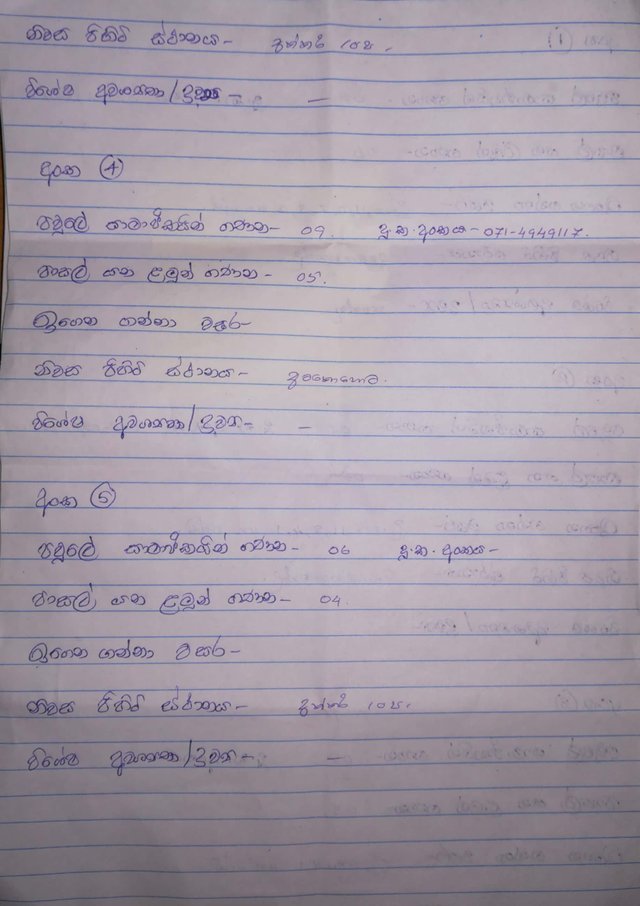 නිවස පිහිටි ස්ථානය -
විශේෂ අවශ්‍යතා/ද්‍රව්‍ය - —
අංක ④
පවුලේ සාමාජිකයින් ගණන - 09. දු.ක. අංකය - 071-4949117.
පාසල් යන ළමුන් ගණන - 05.
ඉගෙන ගන්නා වසර -
නිවස පිහිටි ස්ථානය -
විශේෂ අවශ්‍යතා/ද්‍රව්‍ය - —
අංක ⑤
පවුලේ සාමාජිකයින් ගණන - 06 දු.ක. අංකය -
පාසල් යන ළමුන් ගණන - 04.
ඉගෙන ගන්නා වසර -
නිවස පිහිටි ස්ථානය -
විශේෂ අවශ්‍යතා/ද්‍රව්‍ය - —